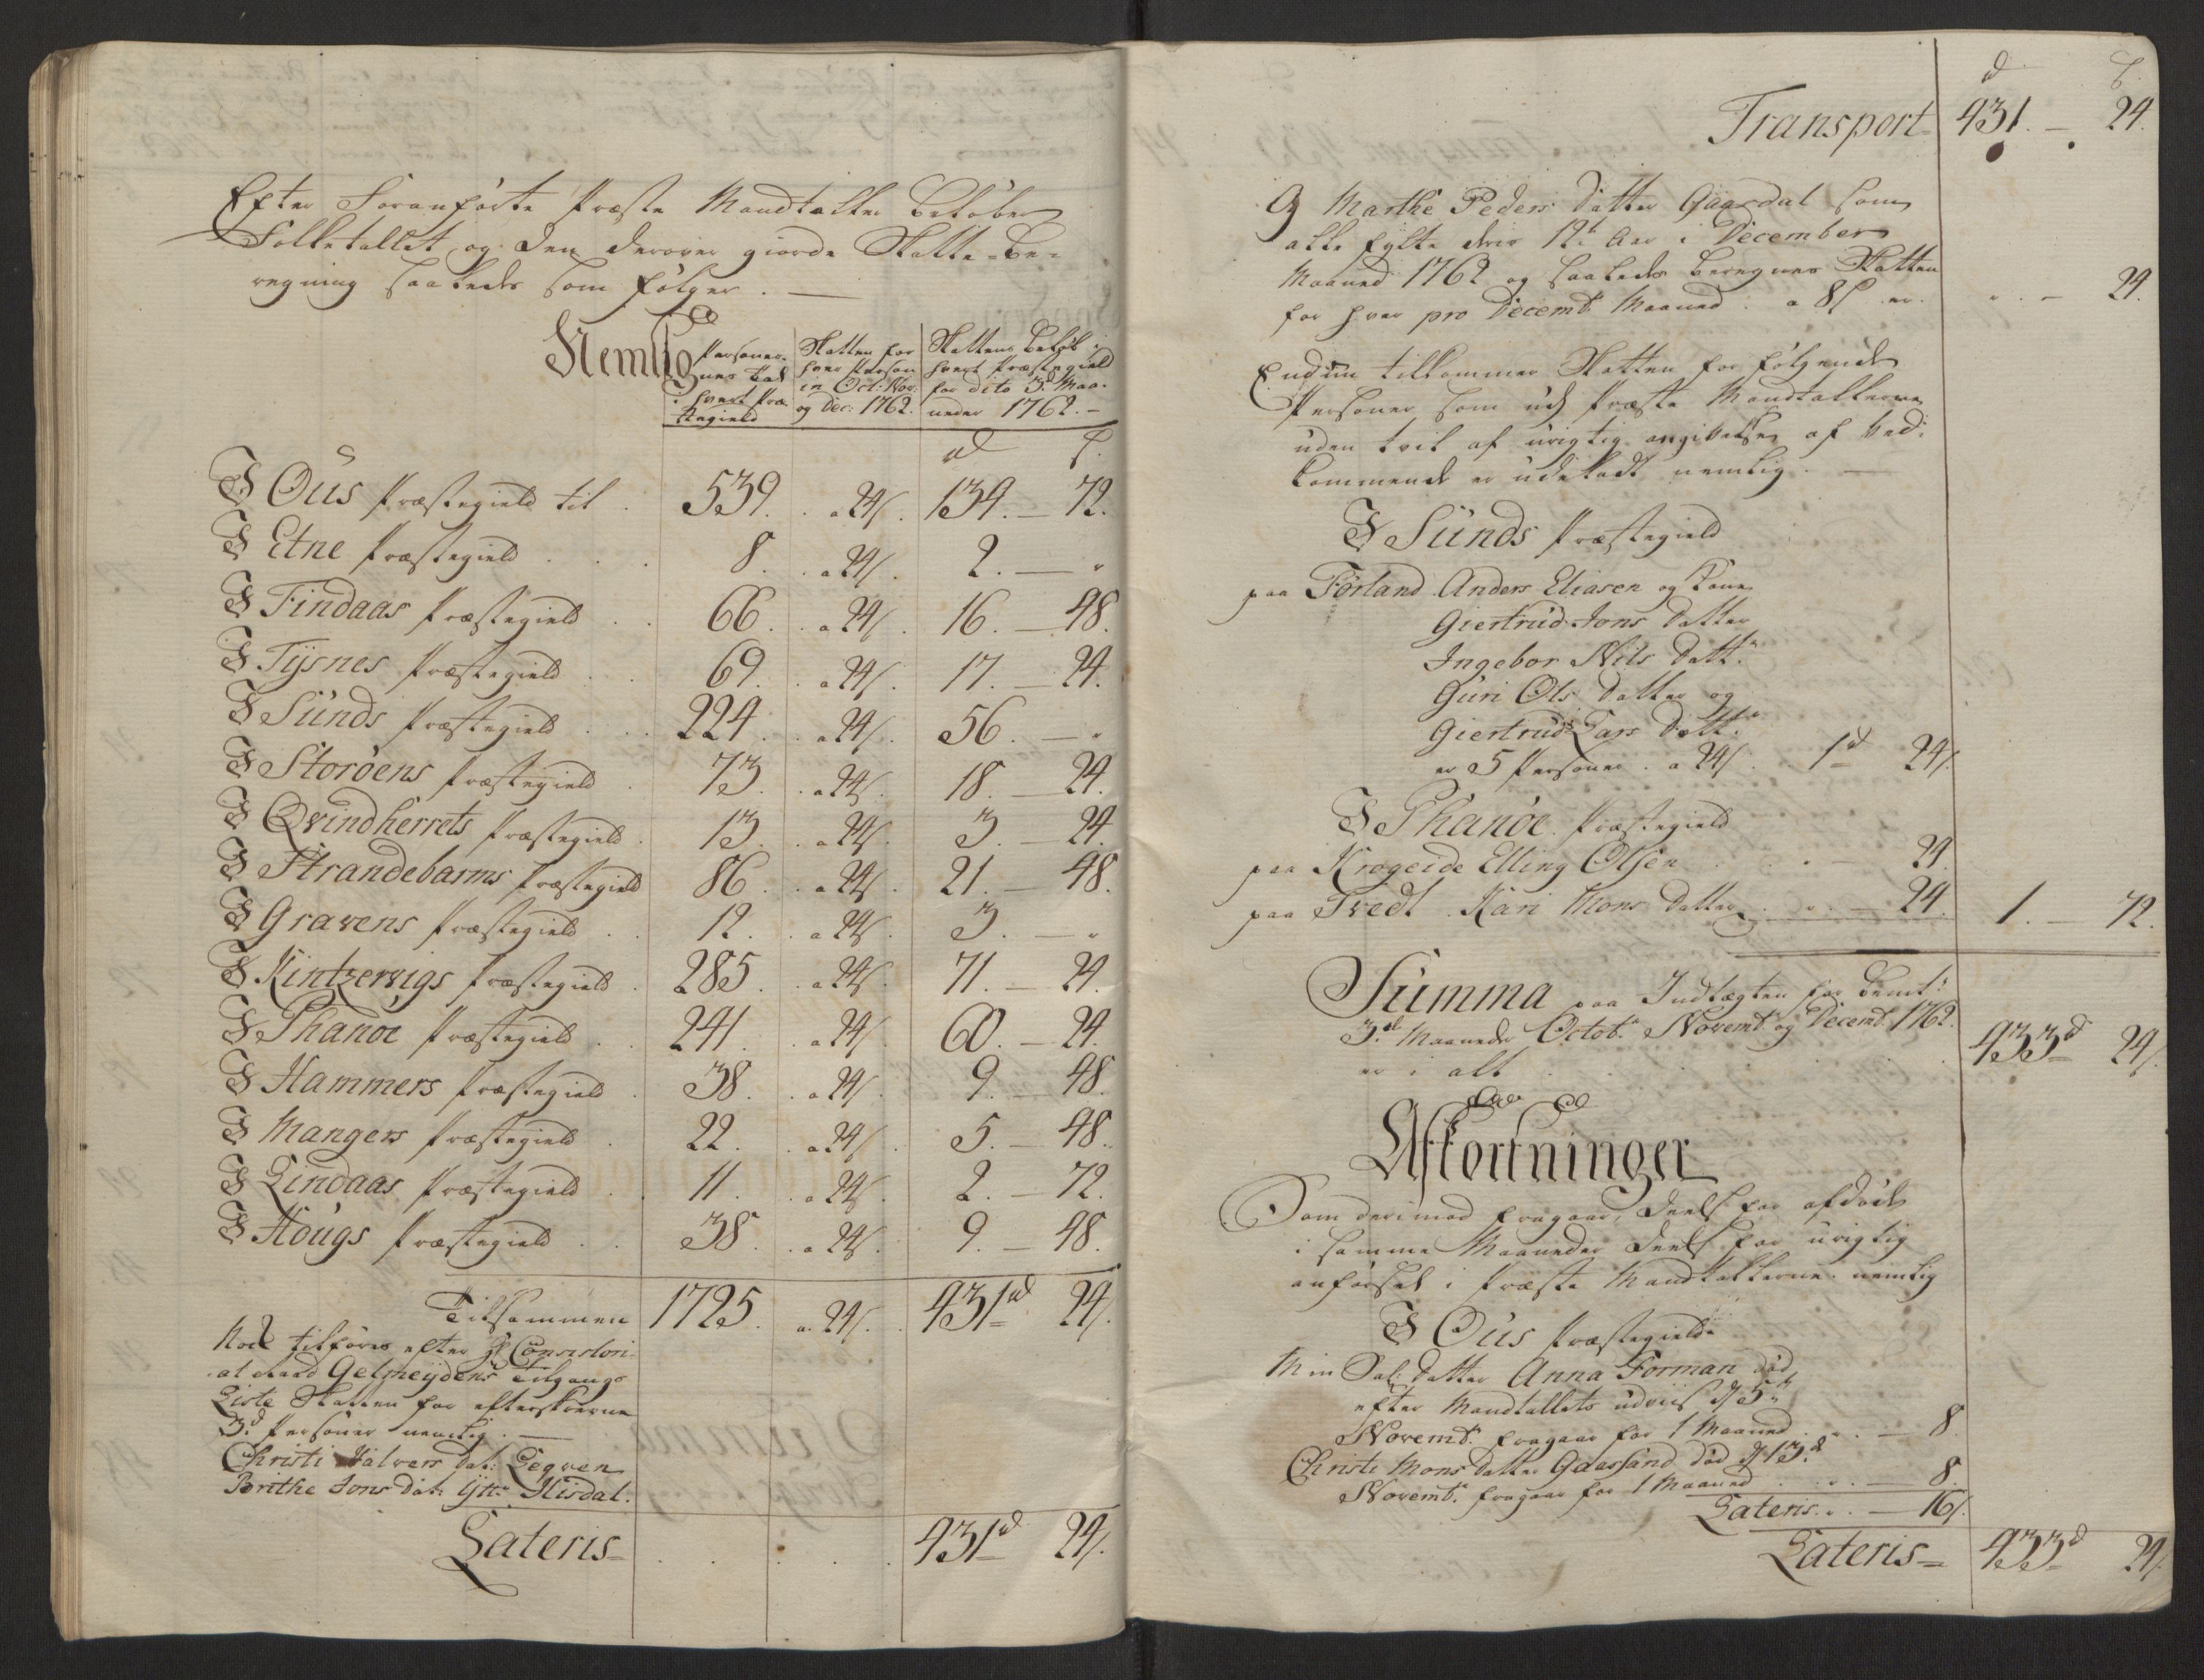 Efter Foranførte Præste Mandtaller beløber
Folketallet og den derover giorde Skatte-Be-
regning saaledes som følger. —
Nemlig
Personer-
nes tal
i hvert Præ-
stegield
Skatten for
hver Person
in Oct: Nov:
og Dec: 1762.
Skattens Beløb i
hvert Præstegield
for dito 3de Maa-
neder 1762. —
d ß.
I Ous Præstegield til . 539. . a 24ß. 134. — 72.
I Etne Præstegield . . . 8. . a 24ß. 2. — "
I Findaas Præstegield . . 66. . a 24ß. 16. — 48.
I Tysnes Præstegield . . 69. . a 24ß. 17. — 24.
I Sunds Præstegield . . 224. . a 24ß. 56. — "
I Storøens Præstegield . 73. . a 24ß. 18. — 24.
I Qvindherrets Præstegield . 13. . a 24ß. 3. — 24.
I Strandebarms Præstegield 86. . a 24ß. 21. — 48.
I Gravens Præstegield . . 12. . a 24ß. 3. — "
I Kintzervigs Præstegield . 285. . a 24ß. 71. — 24.
I Phanøe Præstegield . . 241. . a 24ß. 60. — 24.
I Hammers Præstegield . 38. . a 24ß. 9. — 48.
I Mangers Præstegield . 22. . a 24ß. 5. — 48.
I Lindaas Præstegield . . 11. . a 24ß. 2. — 72.
I Hougs Præstegield . . 38. . a 24ß. 9. — 48.
Tilsammen 1725. a 24ß. 431d 24ß.
Nock tilføres efter Hr Consistori-
al Raad Gelmeydens Tilgangs
Liste Skatten for efterskrevne
3de Personer nemlig. —
Christi Halvers dat: Leqven
Brithe Jons dat: Ytt: Hisdal.
Lateris . . . . 431d 24ß.
d ß
Transport 431. — 24.
Og Marthe Peders datter Gaardal som
alle fylte deris 12te Aar i December
Maaned 1762 og saaledes beregnes Skatten
for hver pro Decembr Maaned . a 8ß er . " . — 24.
Endnu tilkommer Skatten for følgende
Personer som udj Præste Mandtallerne
uden tvil af urigtig angivelse af ved-
kommende er udeladt nemlig. —
I Sunds Præstegield
paa Førland Anders Eliasen og Kone
Giertrud Jons datter
Ingebor Nils datt:
Guri Ols datter og
Giertrud Lars datt:
er 5 Personer . a 24ß . 1d 24ß.
I Phanøe Præstegield
paa Krogeide Elling Olsen . . . — 24
paa Tvedt Kari Mons datter . . — 24. 1. — 72.
Summa paa Indtægten for bemt:
3de Maaneder Octobr Novembr og Decembr 1762.
er i alt . . . . 433d 24ß.
Afkortninger
Som derimod fragaar, deels for afdøde
i samme Maaneder deels for urigtig
anførsel i Præste Mandtallerne. nemlig
I Ous Præstegield.
Min Sal: datter Anna Forman død
efter Mandtallets udviis d 5te
Novembr fragaar for 1 Maaned . . . — 8.
Christi Mons datter Gaassand død d 13de
Novembr: fragaar for 1 Maaned . . . — 8.
Lateris . . — 16ß.
Lateris 433d 24ß.